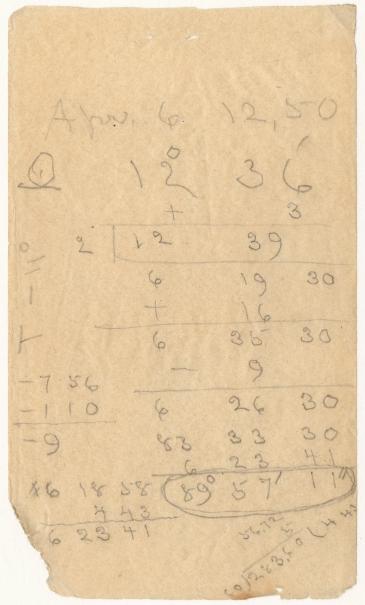 Apr. 6 12,50
12° 36'
+ 3
2 | 12 39
6 19 30
+ 16
6 35 30
- 9
-7 56
-1 10
-9
6 26 30
83 33 30
6 23 41
89° 57' 11"
6 18 58
4 43
6 23 41
56.72
5